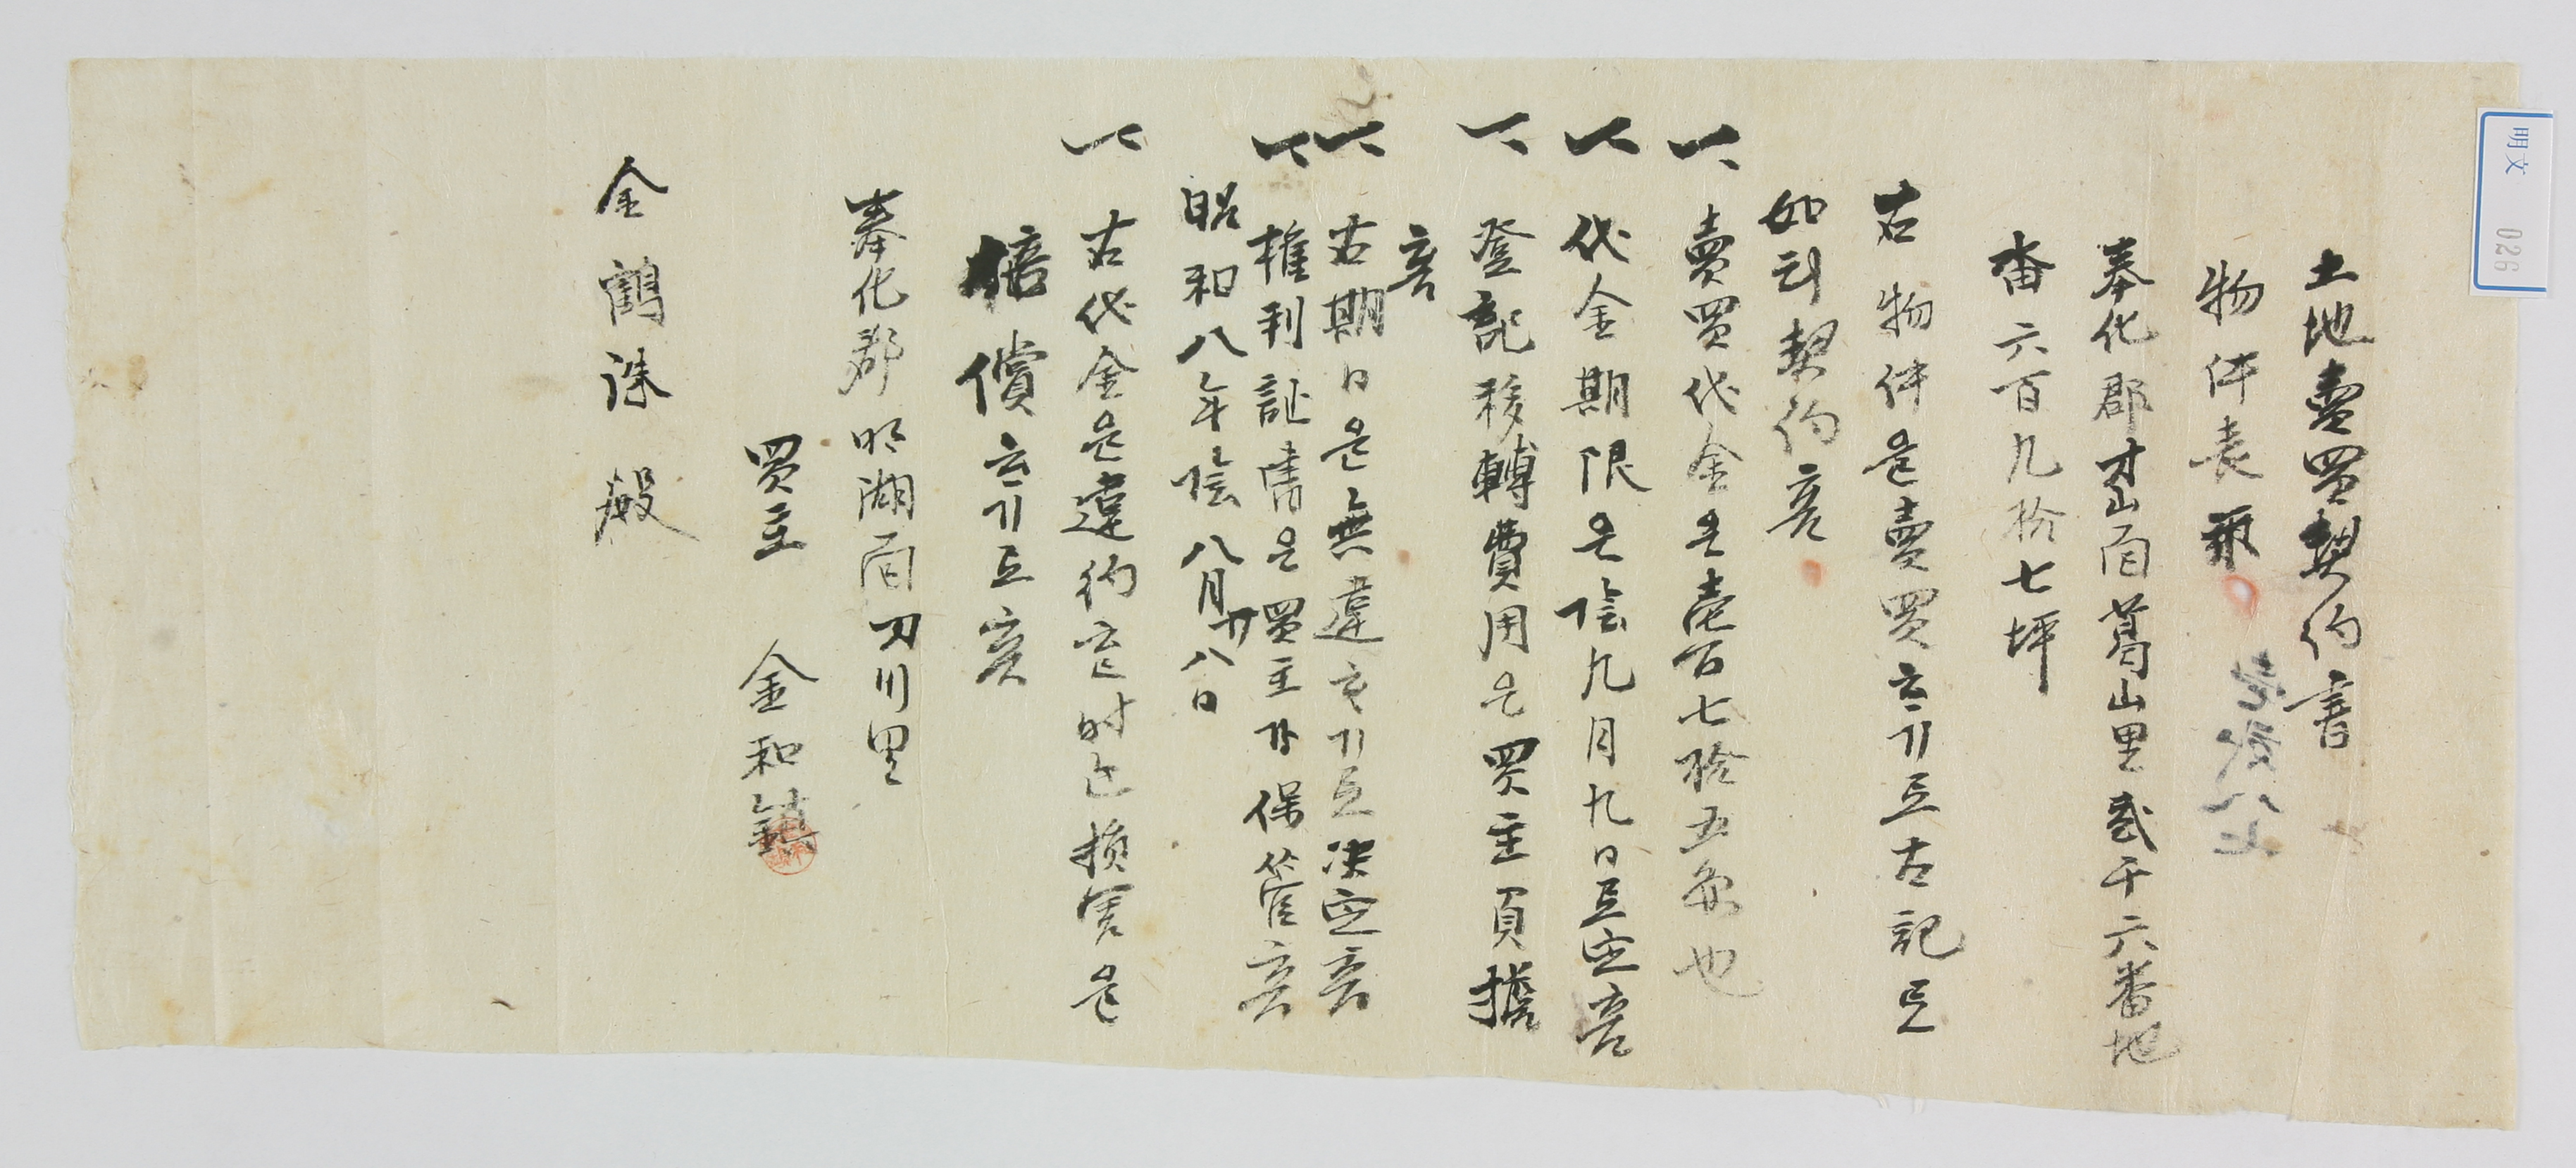 明文 026
土地賣買契約書
物件表示
奉化郡才山面葛山里貳千六番地
畓六百九拾七坪
右物件을賣買하기로右記로
如히契約홈
一、賣買代金은壹百七拾五円也
一、代金期限은陰九月九日로定홈
一、登記移轉費用은買主負擔
홈
一、右期日은無違하기로決定홈
一、権利証書은買主가保管홈
昭和八年陰八月廿八日
一、右代金을違約할時는損害을
賠償하기로홈
奉化郡明湖面刀川里
買主 金和鎮
金鶴洙 殿